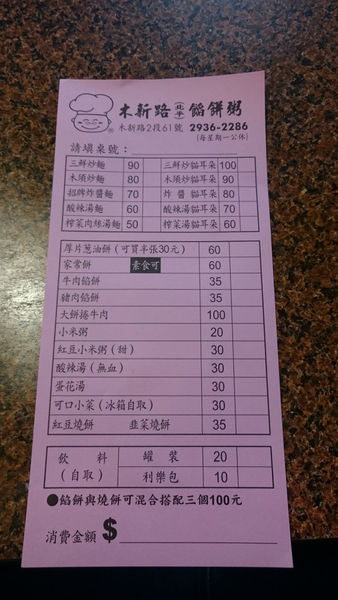 木新路 北平 餡餅粥
木新路2段61號 2936-2286
(每星期一公休)
請填桌號：
三鮮炒麵 90 三鮮炒貓耳朵 100
木須炒麵 80 木須炒貓耳朵 90
招牌炸醬麵 70 炸醬貓耳朵 80
酸辣湯麵 60 酸辣湯貓耳朵 70
榨菜肉絲湯麵 50 榨菜湯貓耳朵 60
厚片蔥油餅(可買半張30元) 60
家常餅 素食可 60
牛肉餡餅 35
豬肉餡餅 35
大餅捲牛肉 100
小米粥 20
紅豆小米粥(甜) 30
酸辣湯(無血) 30
蛋花湯 30
可口小菜(冰箱自取) 30
紅豆燒餅 韭菜燒餅 35
飲料 罐裝 20
(自取) 利樂包 10
●餡餅與燒餅可混合搭配三個100元
消費金額 $